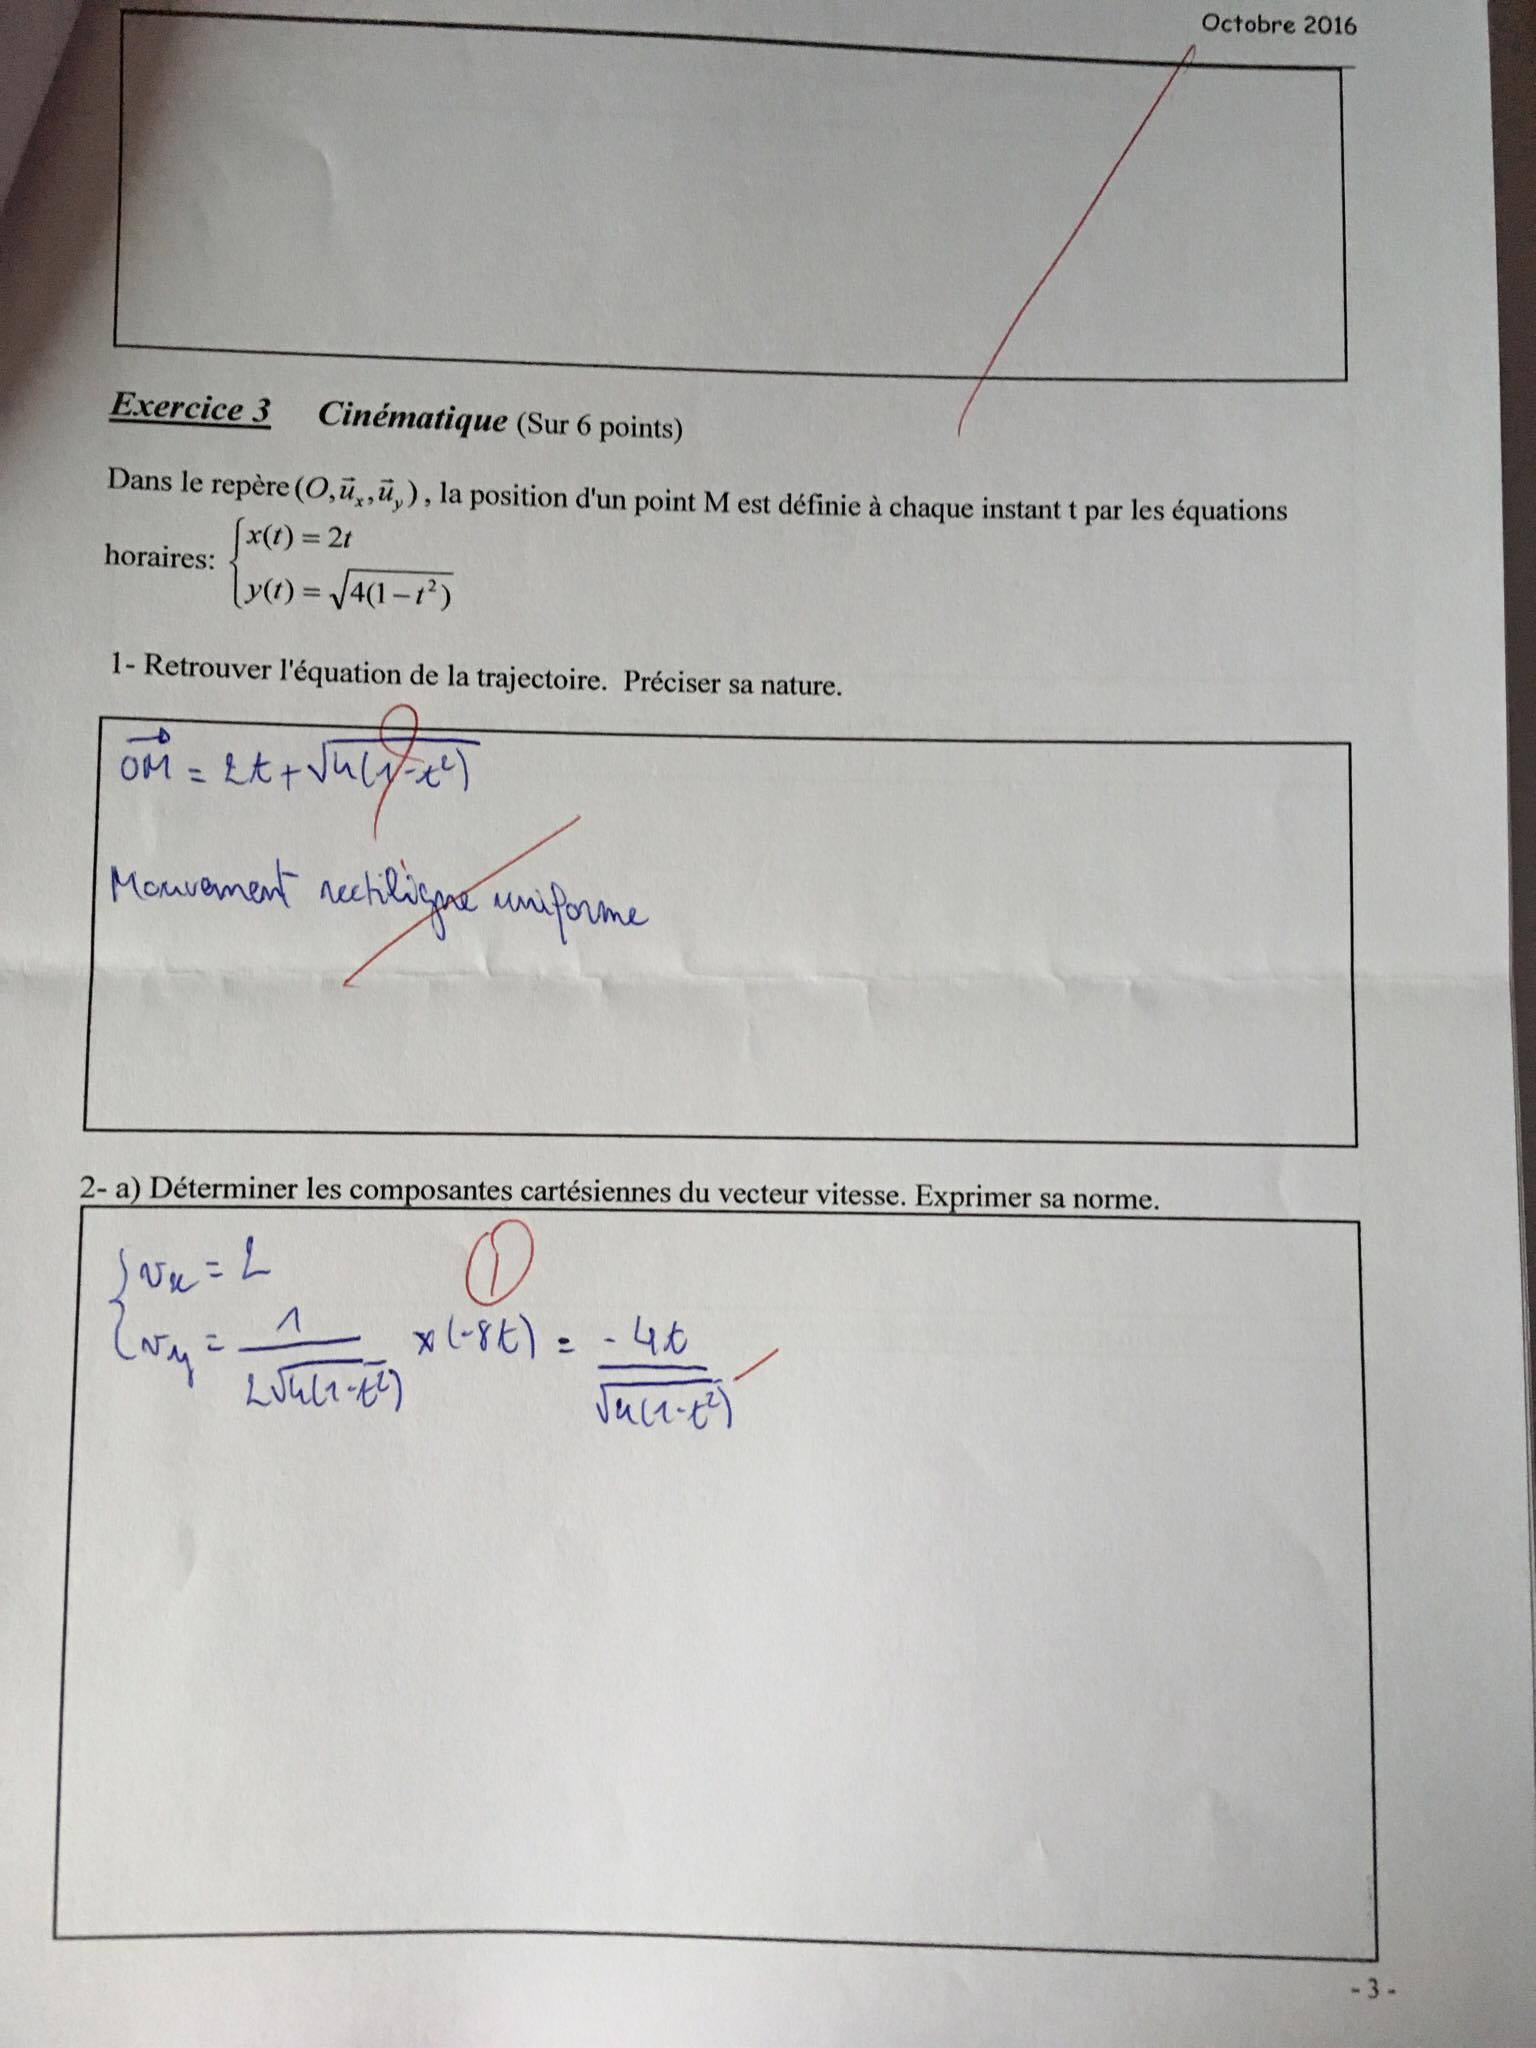 Octobre 2016
Exercice 3 Cinématique (Sur 6 points)
Dans le repère (O, u⃗ₓ, u⃗ᵧ), la position d'un point M est définie à chaque instant t par les équations
horaires: { x(t) = 2t
y(t) = √(4(1 – t²))
1- Retrouver l'équation de la trajectoire. Préciser sa nature.
OM⃗ = 2t + √(4(1-t²))
Mouvement rectiligne uniforme
2- a) Déterminer les composantes cartésiennes du vecteur vitesse. Exprimer sa norme.
{ vx = 2
vy = 1/(2√(4(1-t²))) × (-8t) = -4t/√(4(1-t²))
1
- 3 -